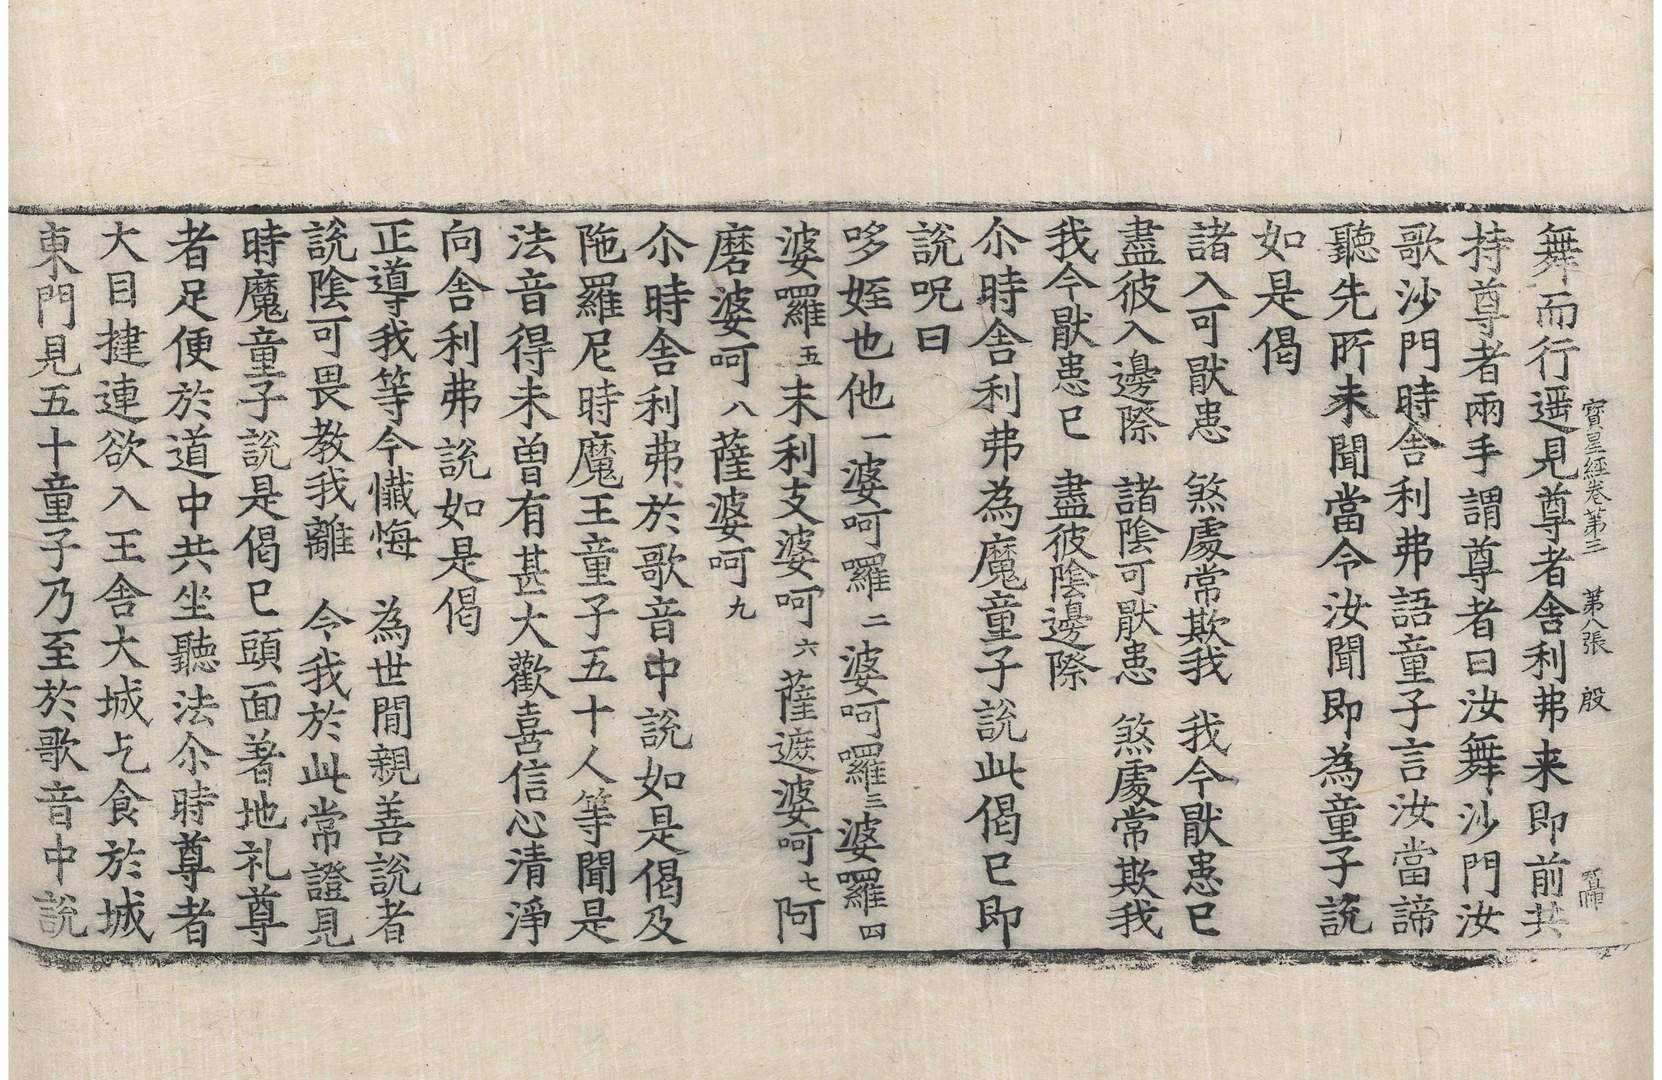 寳星經卷第三　第八張　殷
舞而行遥見尊者舍利弗来即前共
持尊者兩手謂尊者曰汝舞沙門汝
歌沙門時舍利弗語童子言汝當諦
聽先所未聞當令汝聞即為童子説
如是偈
諸入可猒患　煞處常欺我　我今猒患已
盡彼入邊際　諸陰可猒患　煞處常欺我
我今猒患已　盡彼陰邊際
尒時舍利弗為魔童子説此偈已即
説呪曰
哆姪也他一婆呵囉二婆呵囉三婆囉四
婆囉五末利支婆呵六薩遮婆呵七阿
磨婆呵八薩婆呵九
尒時舍利弗於歌音中説如是偈及
陁羅尼時魔王童子五十人等聞是
法音得未曽有甚大歡喜信心清淨
向舍利弗説如是偈
正導我等今懺悔　為世間親善説者
説陰可畏教我離　今我於此常證見
時魔童子説是偈已頭面著地礼尊
者足便於道中共坐聽法尒時尊者
大目揵連欲入王舍大城乞食於城
東門見五十童子乃至於歌音中説